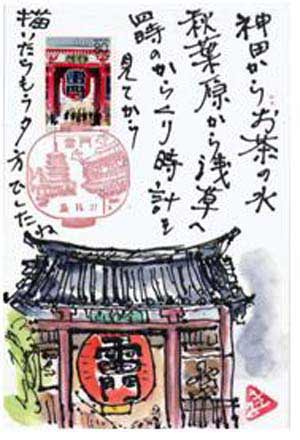 神田からお茶の水
秋葉原から浅草へ
四時のからくり時計を
見てから
描いたらもう夕方でしたね
雷門
雷門
雷門